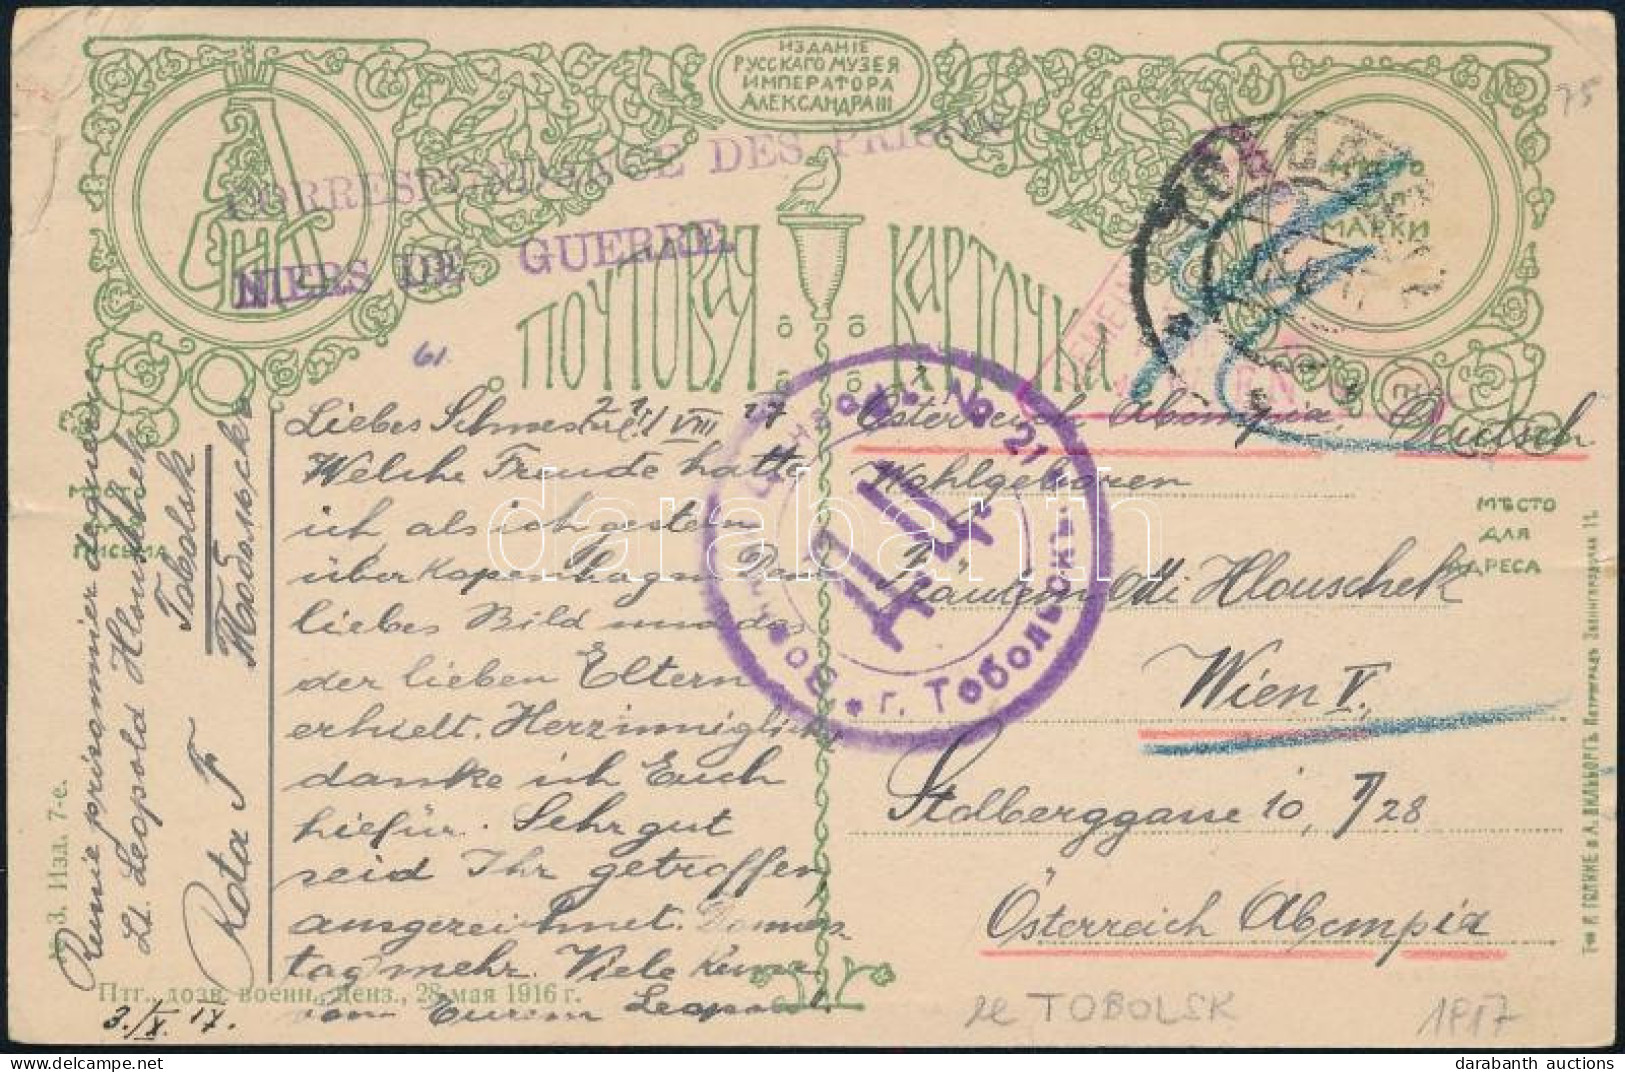 ИЗДАНІЕ
РУССКАГО МУЗЕЯ
ИМПЕРАТОРА
АЛЕКСАНДРА III
75
CORRESPONDANCE DES PRISON
NIERS DE GUERRE
МАРКИ
ПОЧТОВАЯ КАРТОЧКА
61.
WIEN
Liebes Schwester! 21/VIII 17
Welche Freude hatte
ich als ich gestern
über Kopenhagen Dein
liebes Bild und das
der lieben Eltern
erhielt. Herzinniglich
danke ich Euch
hiefür. Sehr gut
seid Ihr getroffen
ausgezeichnet.
tag mehr. Viele
von Eurem Leopold
Österreich
Wohlgeboren
Fräulein Hlouschek
Wien V.
Stolberggasse 10, /28
Österreich
МѢСТО
ДЛЯ
АДРЕСА
ПИСЬМА
№ 21
ДД
г. Тобольскъ
Lt. Leopold Hlouschek
Tobolsk
Тобольскъ
Rota
№ 3. Изд. 7-е.
Птг., дозв. военн. ценз., 28 мая 1916 г.
3./X. 17.
Тов Р. ГОЛИКЕ и А. ВИЛЬБОРГЪ. Петроградъ Звенигородская 11.
TOBOLSK
1917
darabanth
darabanth auctions